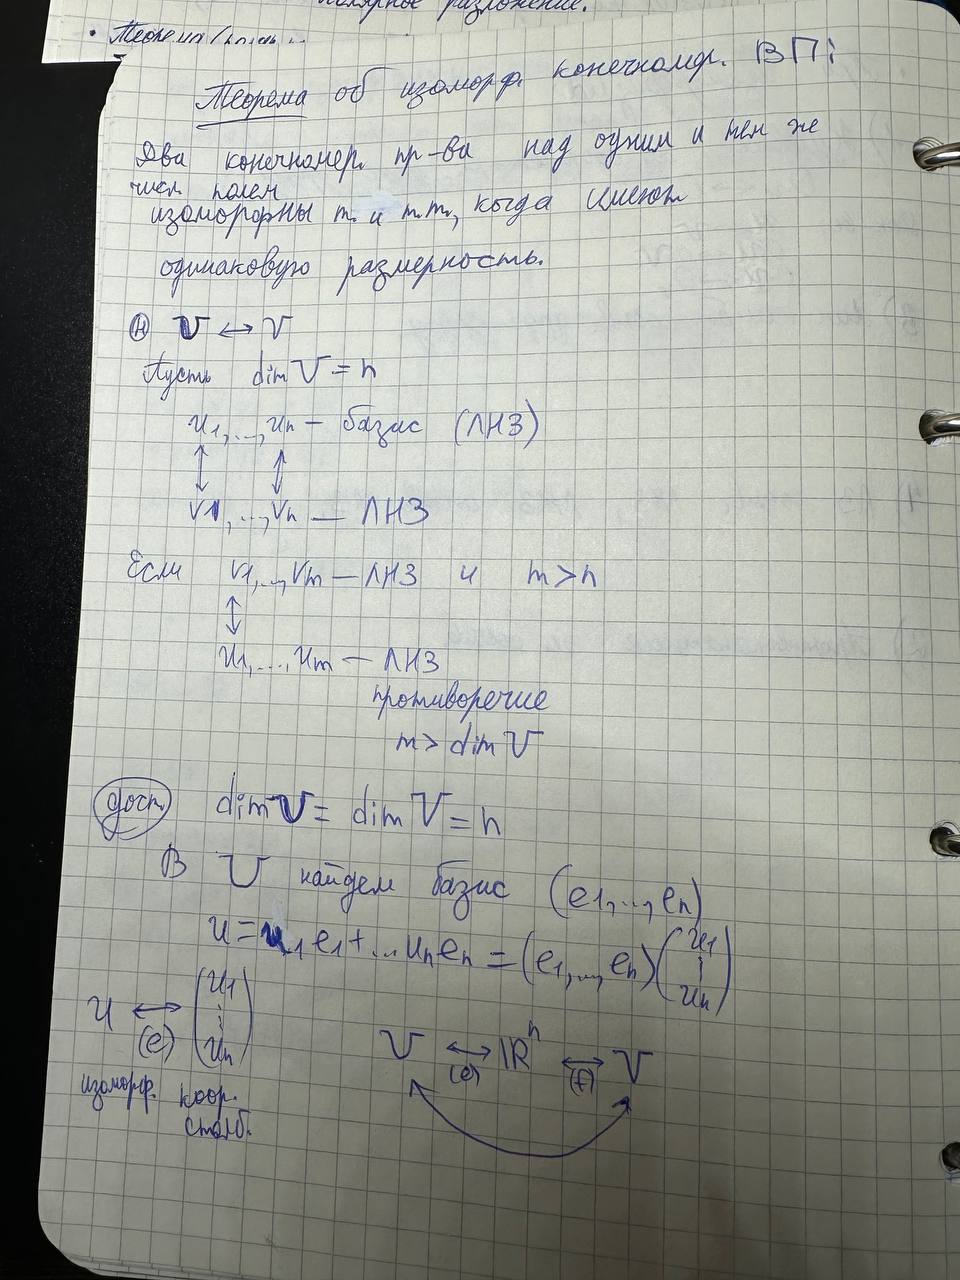 полярное разложение.
• Теорема
Теорема об изоморф. конечномер. ВП:
Два конечномер. пр-ва над одним и тем же
числ. полем
изоморфны т. и т.т., когда имеют
одинаковую размерность.
(Н) U ↔ V
Пусть dim U = n
u1,...,un — базис (ЛНЗ)
↕ ↕
v1,...,vn — ЛНЗ
Если v1,...,vm — ЛНЗ и m>n
↕
u1,...,um — ЛНЗ
противоречие
m > dim U
(дост.) dim U = dim V = n
В U найдем базис (e1,...,en)
u = u1e1+...unen = (e1,...,en)(u1 ⋮ un)
u ↔ (e) (u1 ⋮ un)
U ↔ (e) ℝⁿ ↔ (f) V
изоморф. коор.
столб.